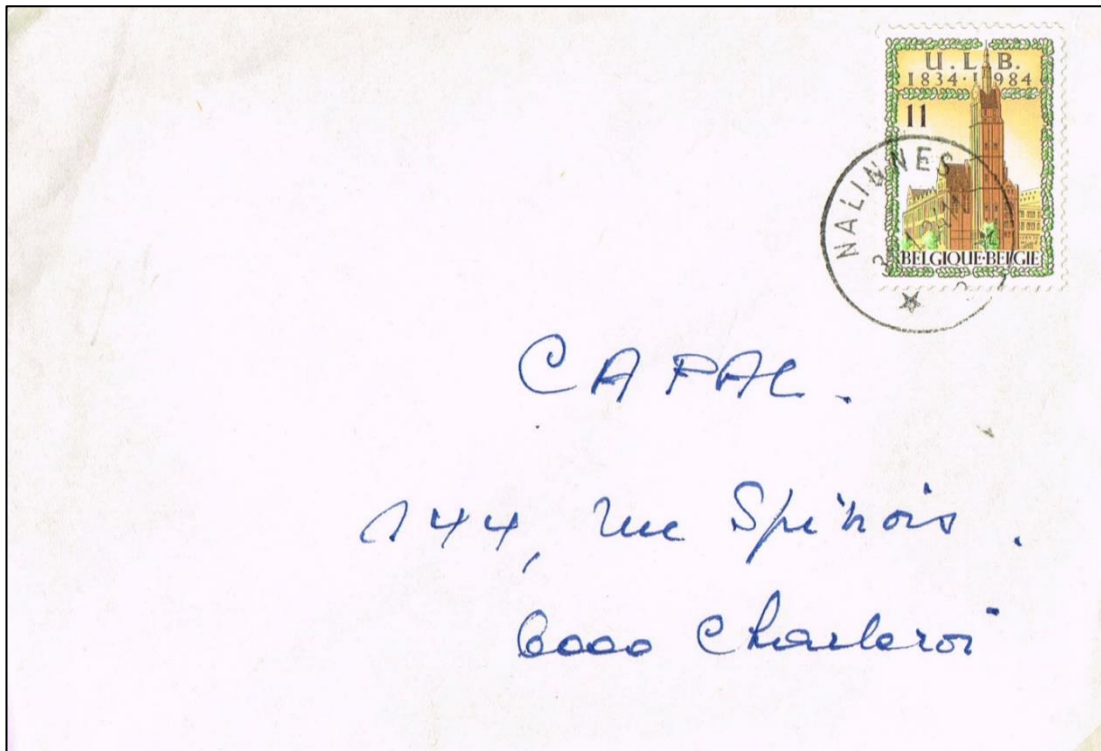 U.L.B.
1834·1984
11
BELGIQUE·BELGIË
NALINNES
144, rue Spinois.
6000 Charleroi